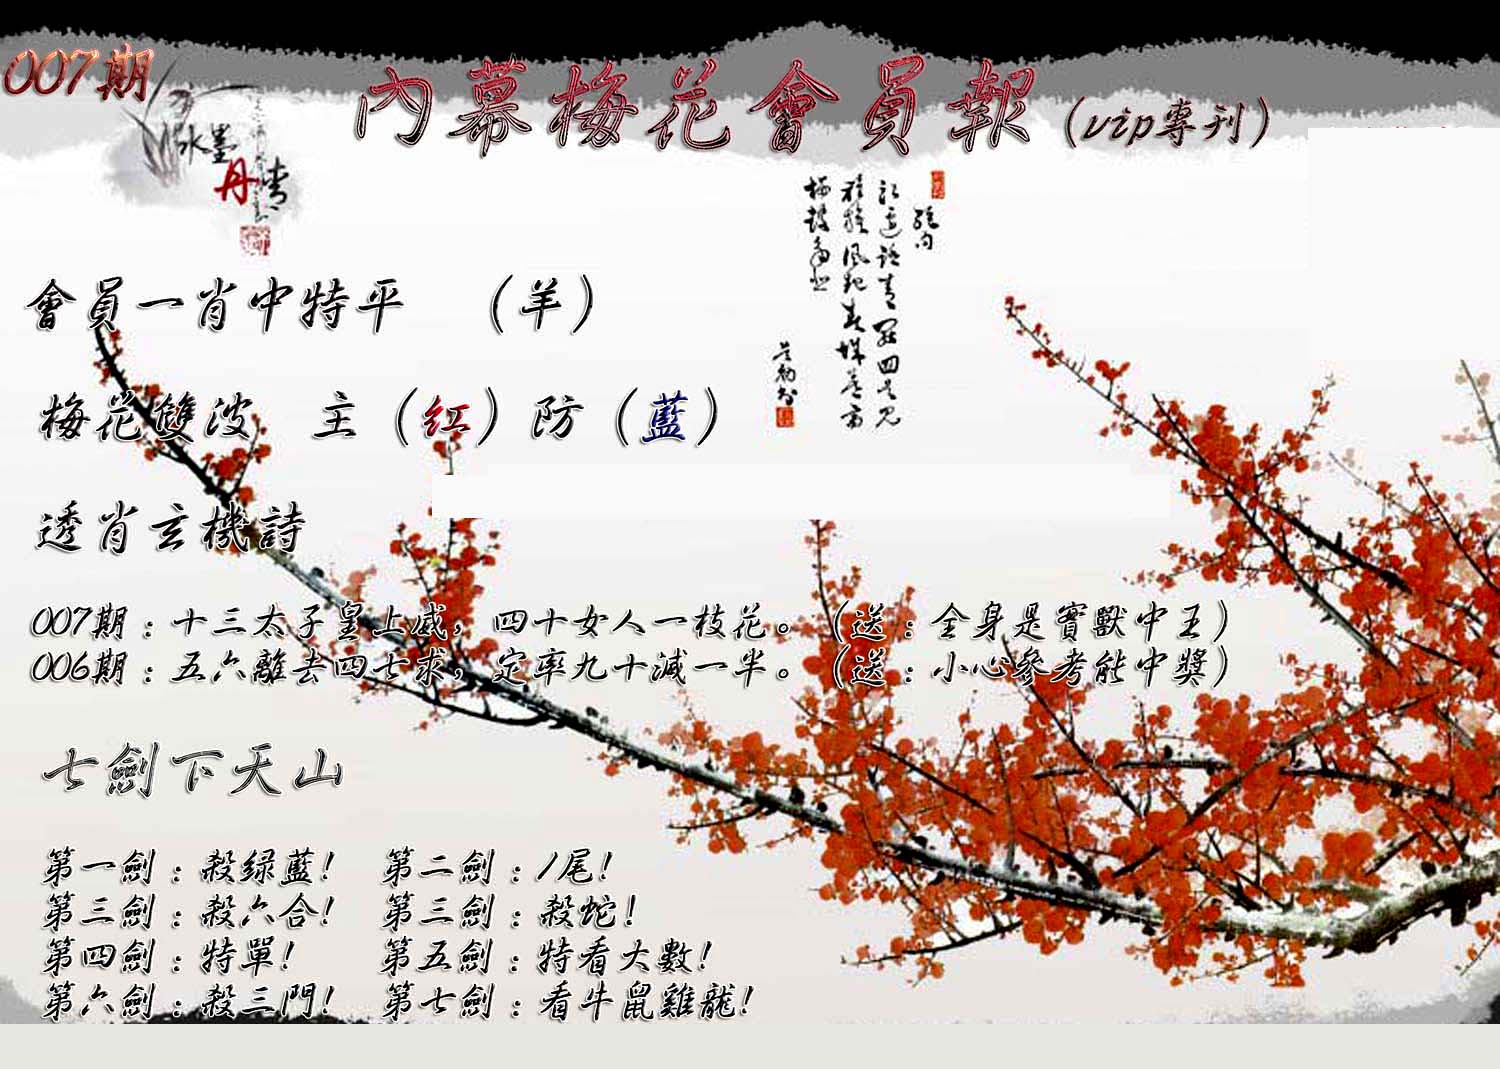 007期
內幕梅花會員報（vip專刊）
水墨
丹青
會員一肖中特平　（羊）
梅花雙波　主（紅）防（藍）
透肖玄機詩
007期：十三太子皇上威，四十女人一枝花。（送：全身是寶獸中王）
006期：五六離去四七求，定率九十減一半。（送：小心參考能中獎）
七劍下天山
第一劍：殺绿藍！　第二劍：1尾！
第三劍：殺六合！　第三劍：殺蛇！
第四劍：特單！　第五劍：特看大數！
第六劍：殺三門！　第七劍：看牛鼠雞龍！